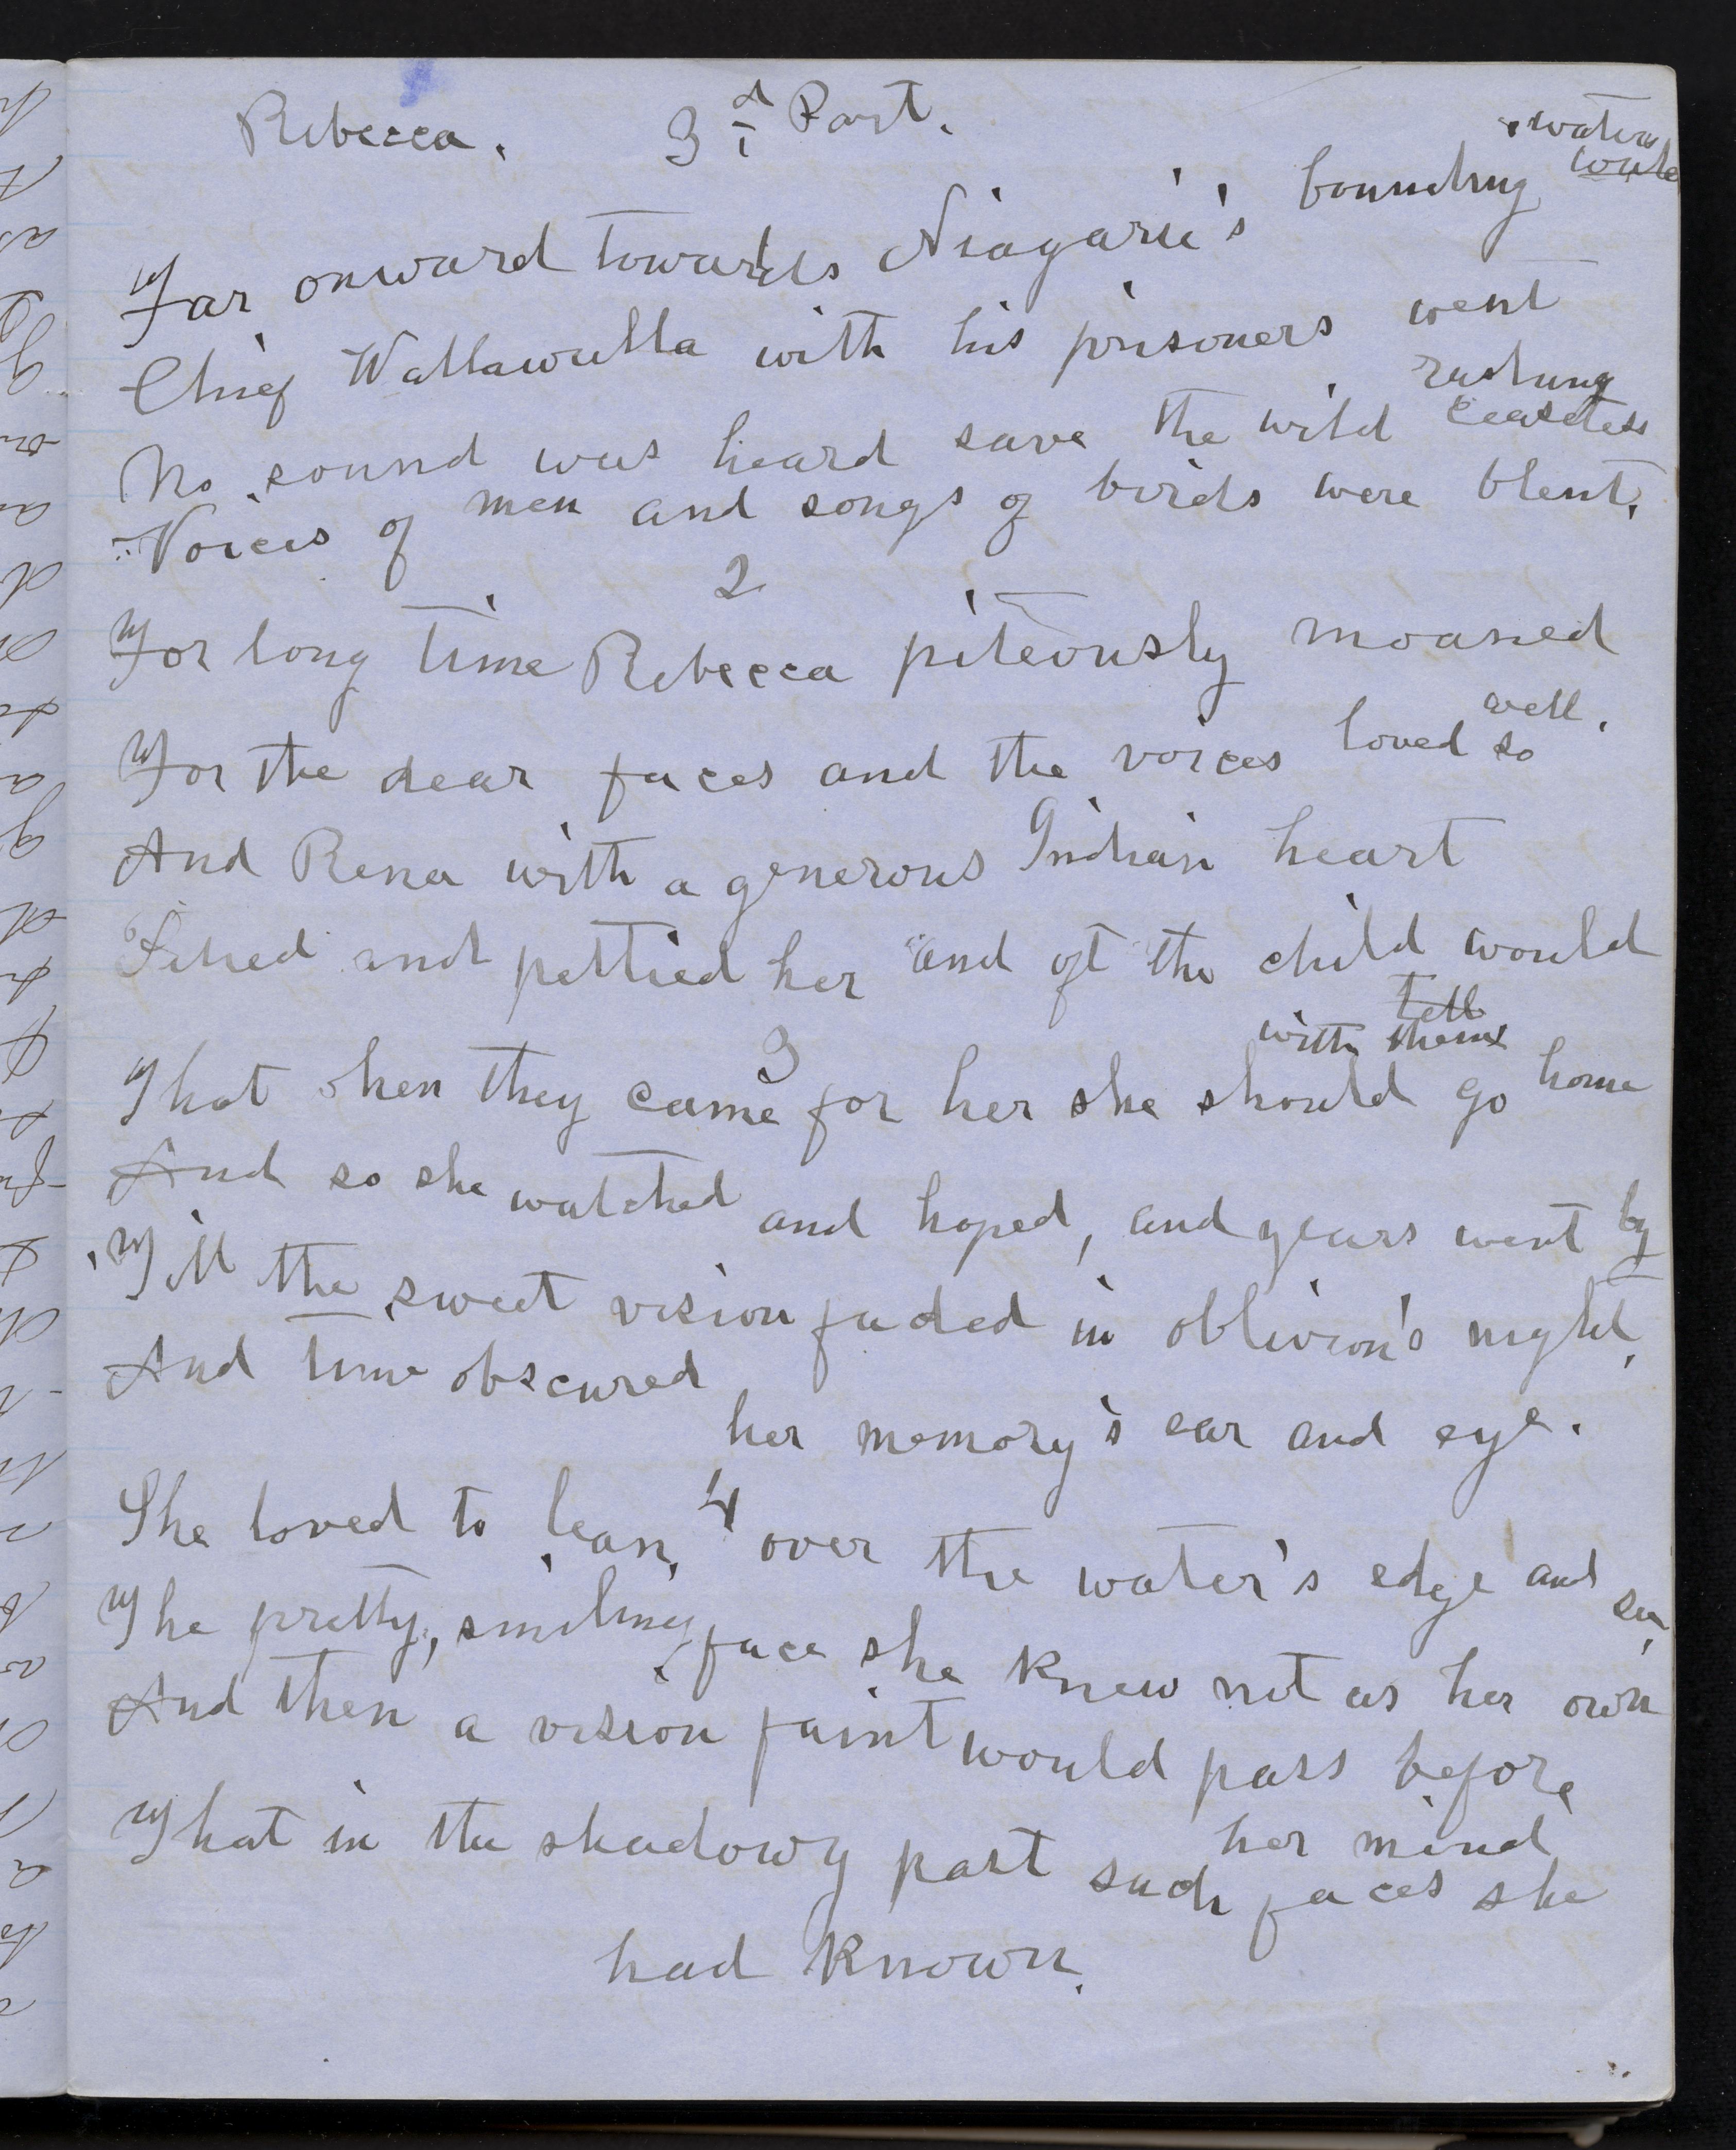 Rebecca. 3d Part.
1
Far onward towards Niagarie's bounding waters
Chief Wallawulla with his prisoners went
No sound was heard save the wild rushing ceaseless
Voices of men and songs of birds were blent.
2
For long time Rebecca piteously moaned
For the dear faces and the voices loved so well.
And Rena with a generous Indian heart
and pettied her and oft the child would tell
3
That when they came for her she should go home with them
And so she watched and hoped, and years went by
Till the sweet vision faded in oblivion's night,
And time obscured
her memory's ear and eye.
4
She loved to lean over the water's edge and see
The pretty, smiling face she knew not as her own
And then a vision faint would pass before
her mind
That in the shadowy past such faces she
had known.